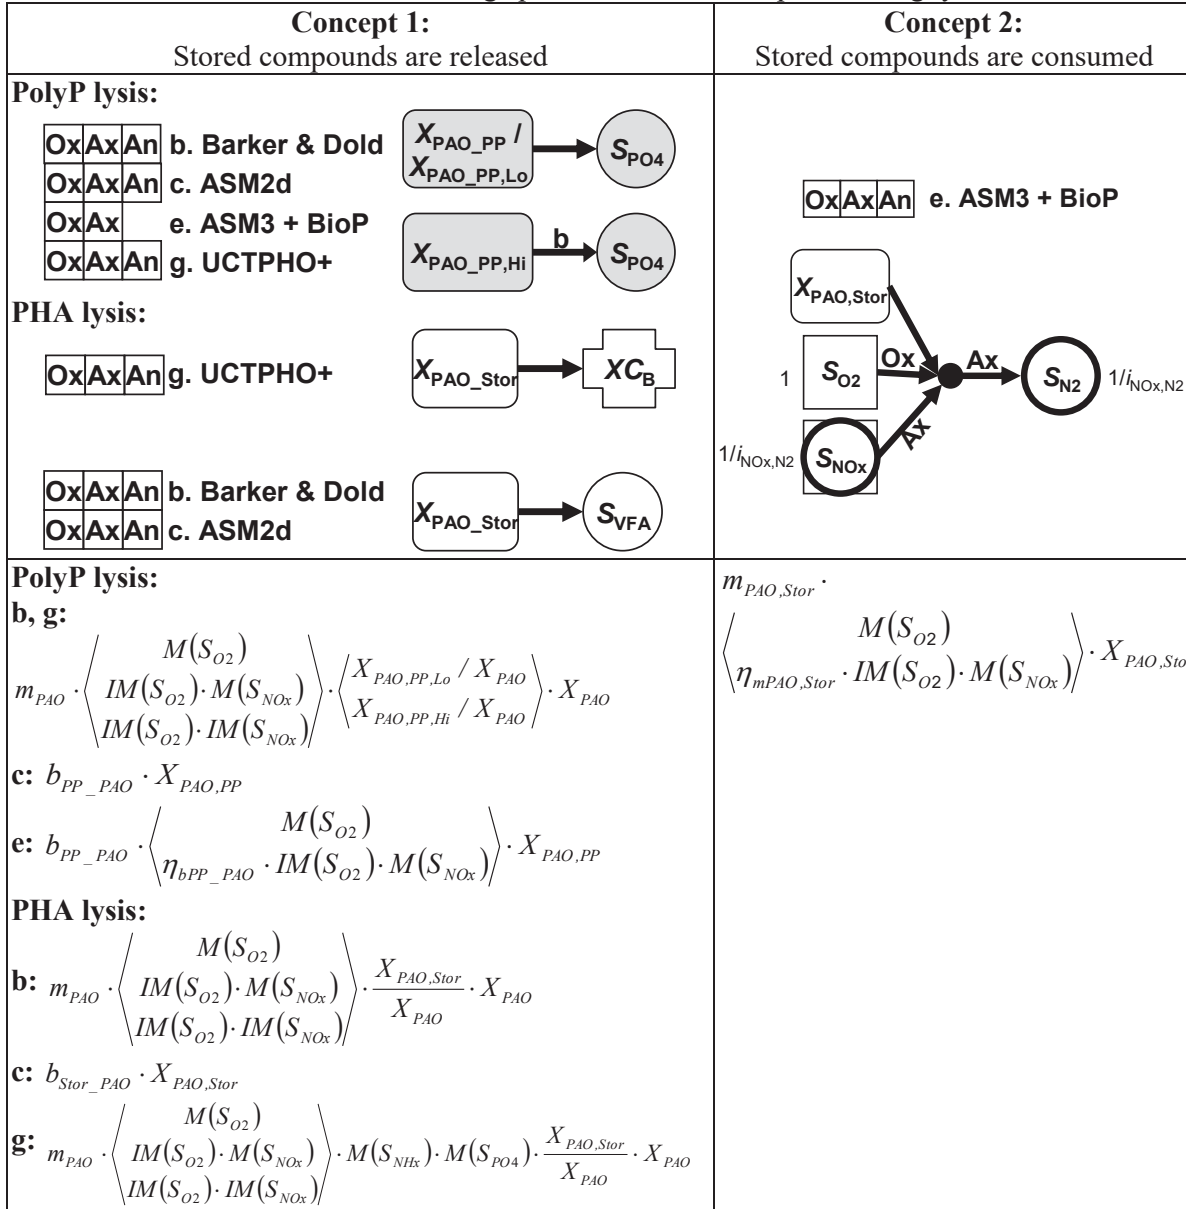 Concept 1:
Stored compounds are released
Concept 2:
Stored compounds are consumed
PolyP lysis:
Ox Ax An b. Barker & Dold
Ox Ax An c. ASM2d
Ox Ax e. ASM3 + BioP
Ox Ax An g. UCTPHO+
X_PAO_PP / X_PAO_PP,Lo
S_PO4
X_PAO_PP,Hi
b
S_PO4
PHA lysis:
Ox Ax An g. UCTPHO+
X_PAO_Stor
XC_B
Ox Ax An b. Barker & Dold
Ox Ax An c. ASM2d
X_PAO_Stor
S_VFA
Ox Ax An e. ASM3 + BioP
X_PAO,Stor
1 S_O2 Ox Ax S_N2 1/i_NOx,N2
1/i_NOx,N2 S_NOx Ax
PolyP lysis:
b, g:
m_PAO · ⟨ M(S_O2)
IM(S_O2) · M(S_NOx)
IM(S_O2) · IM(S_NOx) ⟩ · ⟨ X_PAO,PP,Lo / X_PAO
X_PAO,PP,Hi / X_PAO ⟩ · X_PAO
c: b_PP_PAO · X_PAO,PP
e: b_PP_PAO · ⟨ M(S_O2)
η_bPP_PAO · IM(S_O2) · M(S_NOx) ⟩ · X_PAO,PP
PHA lysis:
b: m_PAO · ⟨ M(S_O2)
IM(S_O2) · M(S_NOx)
IM(S_O2) · IM(S_NOx) ⟩ · X_PAO,Stor / X_PAO · X_PAO
c: b_Stor_PAO · X_PAO,Stor
g: m_PAO · ⟨ M(S_O2)
IM(S_O2) · M(S_NOx)
IM(S_O2) · IM(S_NOx) ⟩ · M(S_NHx) · M(S_PO4) · X_PAO,Stor / X_PAO · X_PAO
m_PAO,Stor ·
⟨ M(S_O2)
η_mPAO,Stor · IM(S_O2) · M(S_NOx) ⟩ · X_PAO,Sto